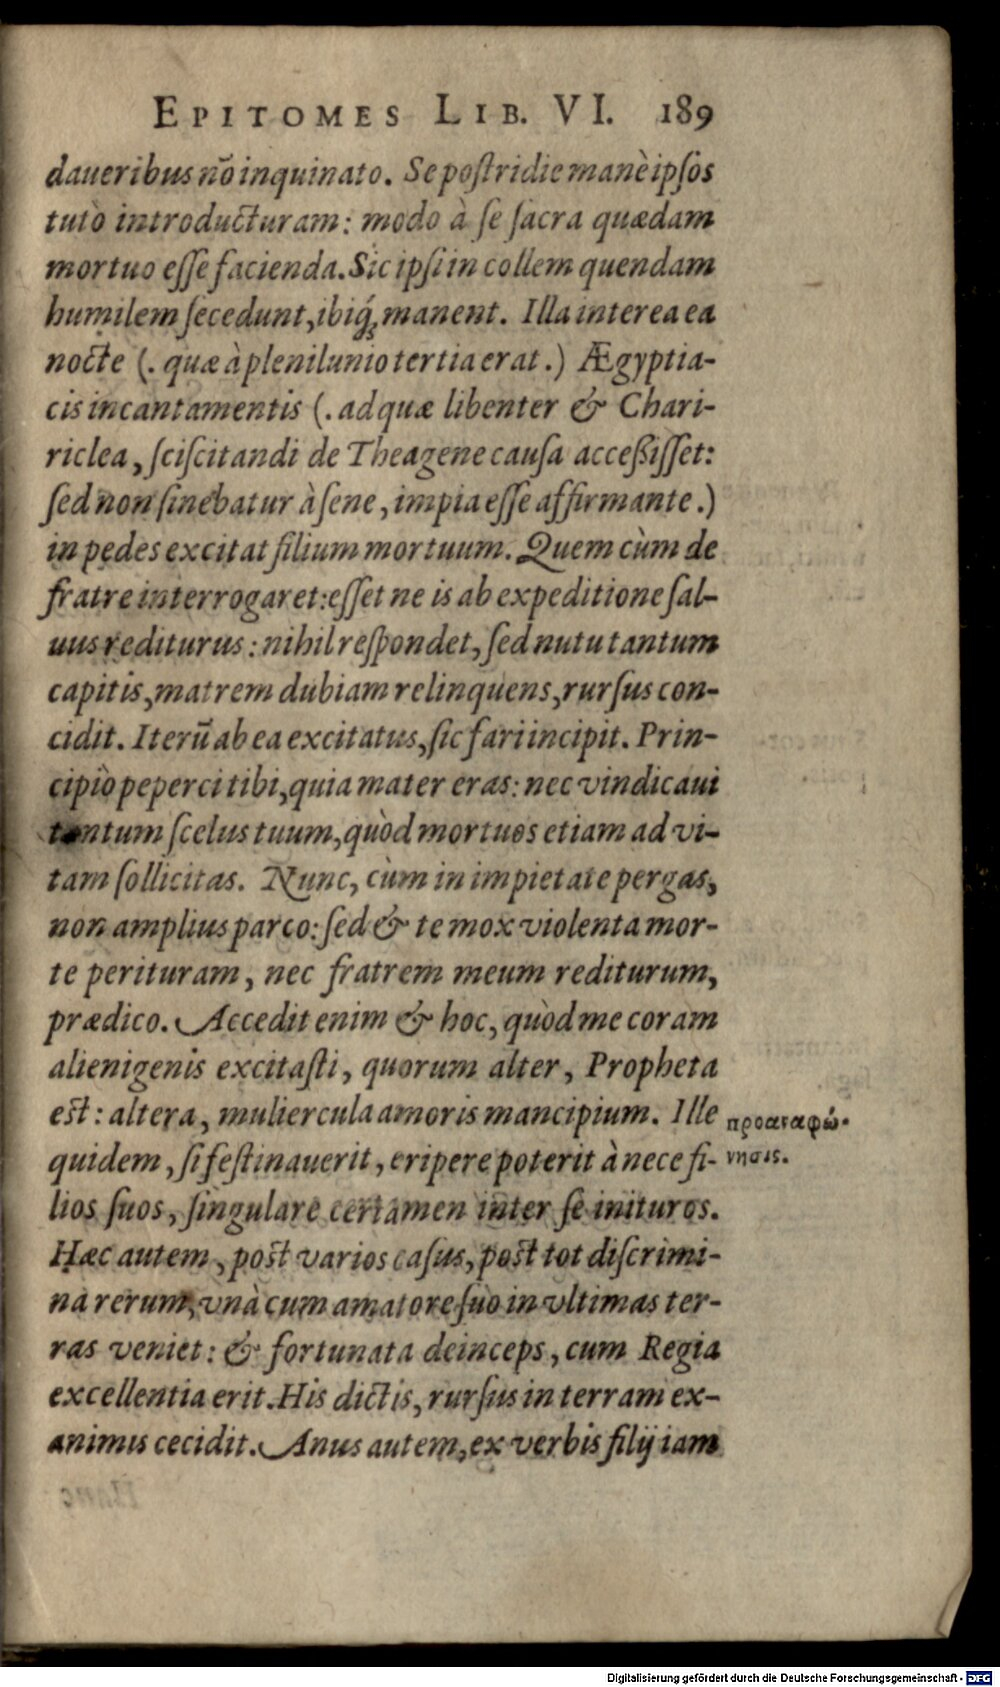 EPITOMES LIB. VI. 189
daueribus nõ inquinato. Se postridie manè ipsos
tutò introducturam: modo à se sacra quædam
mortuo esse facienda. Sic ipsi in collem quendam
humilem secedunt, ibiq́; manent. Illa interea ea
nocte (. quæ à plenilunio tertia erat .) Ægyptia-
cis incantamentis (. ad quæ libenter & Chari-
riclea, sciscitandi de Theagene causa accessisset:
sed non sinebatur à sene, impia esse affirmante .)
in pedes excitat filium mortuum. Quem cùm de
fratre interrogaret: esset ne is ab expeditione sal-
uus rediturus: nihil respondet, sed nutu tantum
capitis, matrem dubiam relinquens, rursus con-
cidit. Iterũ ab ea excitatus, sic fari incipit. Prin-
cipiò peperci tibi, quia mater eras: nec vindicaui
tantum scelus tuum, quòd mortuos etiam ad vi-
tam sollicitas. Nunc, cùm in impietate pergas,
non amplius parco: sed & te mox violenta mor-
te perituram, nec fratrem meum rediturum,
prædico. Accedit enim & hoc, quòd me coram
alienigenis excitasti, quorum alter, Propheta
est: altera, muliercula amoris mancipium. Ille
προαναφώ-
quidem, si festinauerit, eripere poterit à nece fi-
νησις.
lios suos, singulare certamen inter se inituros.
Hæc autem, post varios casus, post tot discrimi-
na rerum, vnà cum amatore suo in vltimas ter-
ras veniet: & fortunata deinceps, cum Regia
excellentia erit. His dictis, rursus in terram ex-
animus cecidit. Anus autem, ex verbis filij iam
Digitalisierung gefördert durch die Deutsche Forschungsgemeinschaft - DFG